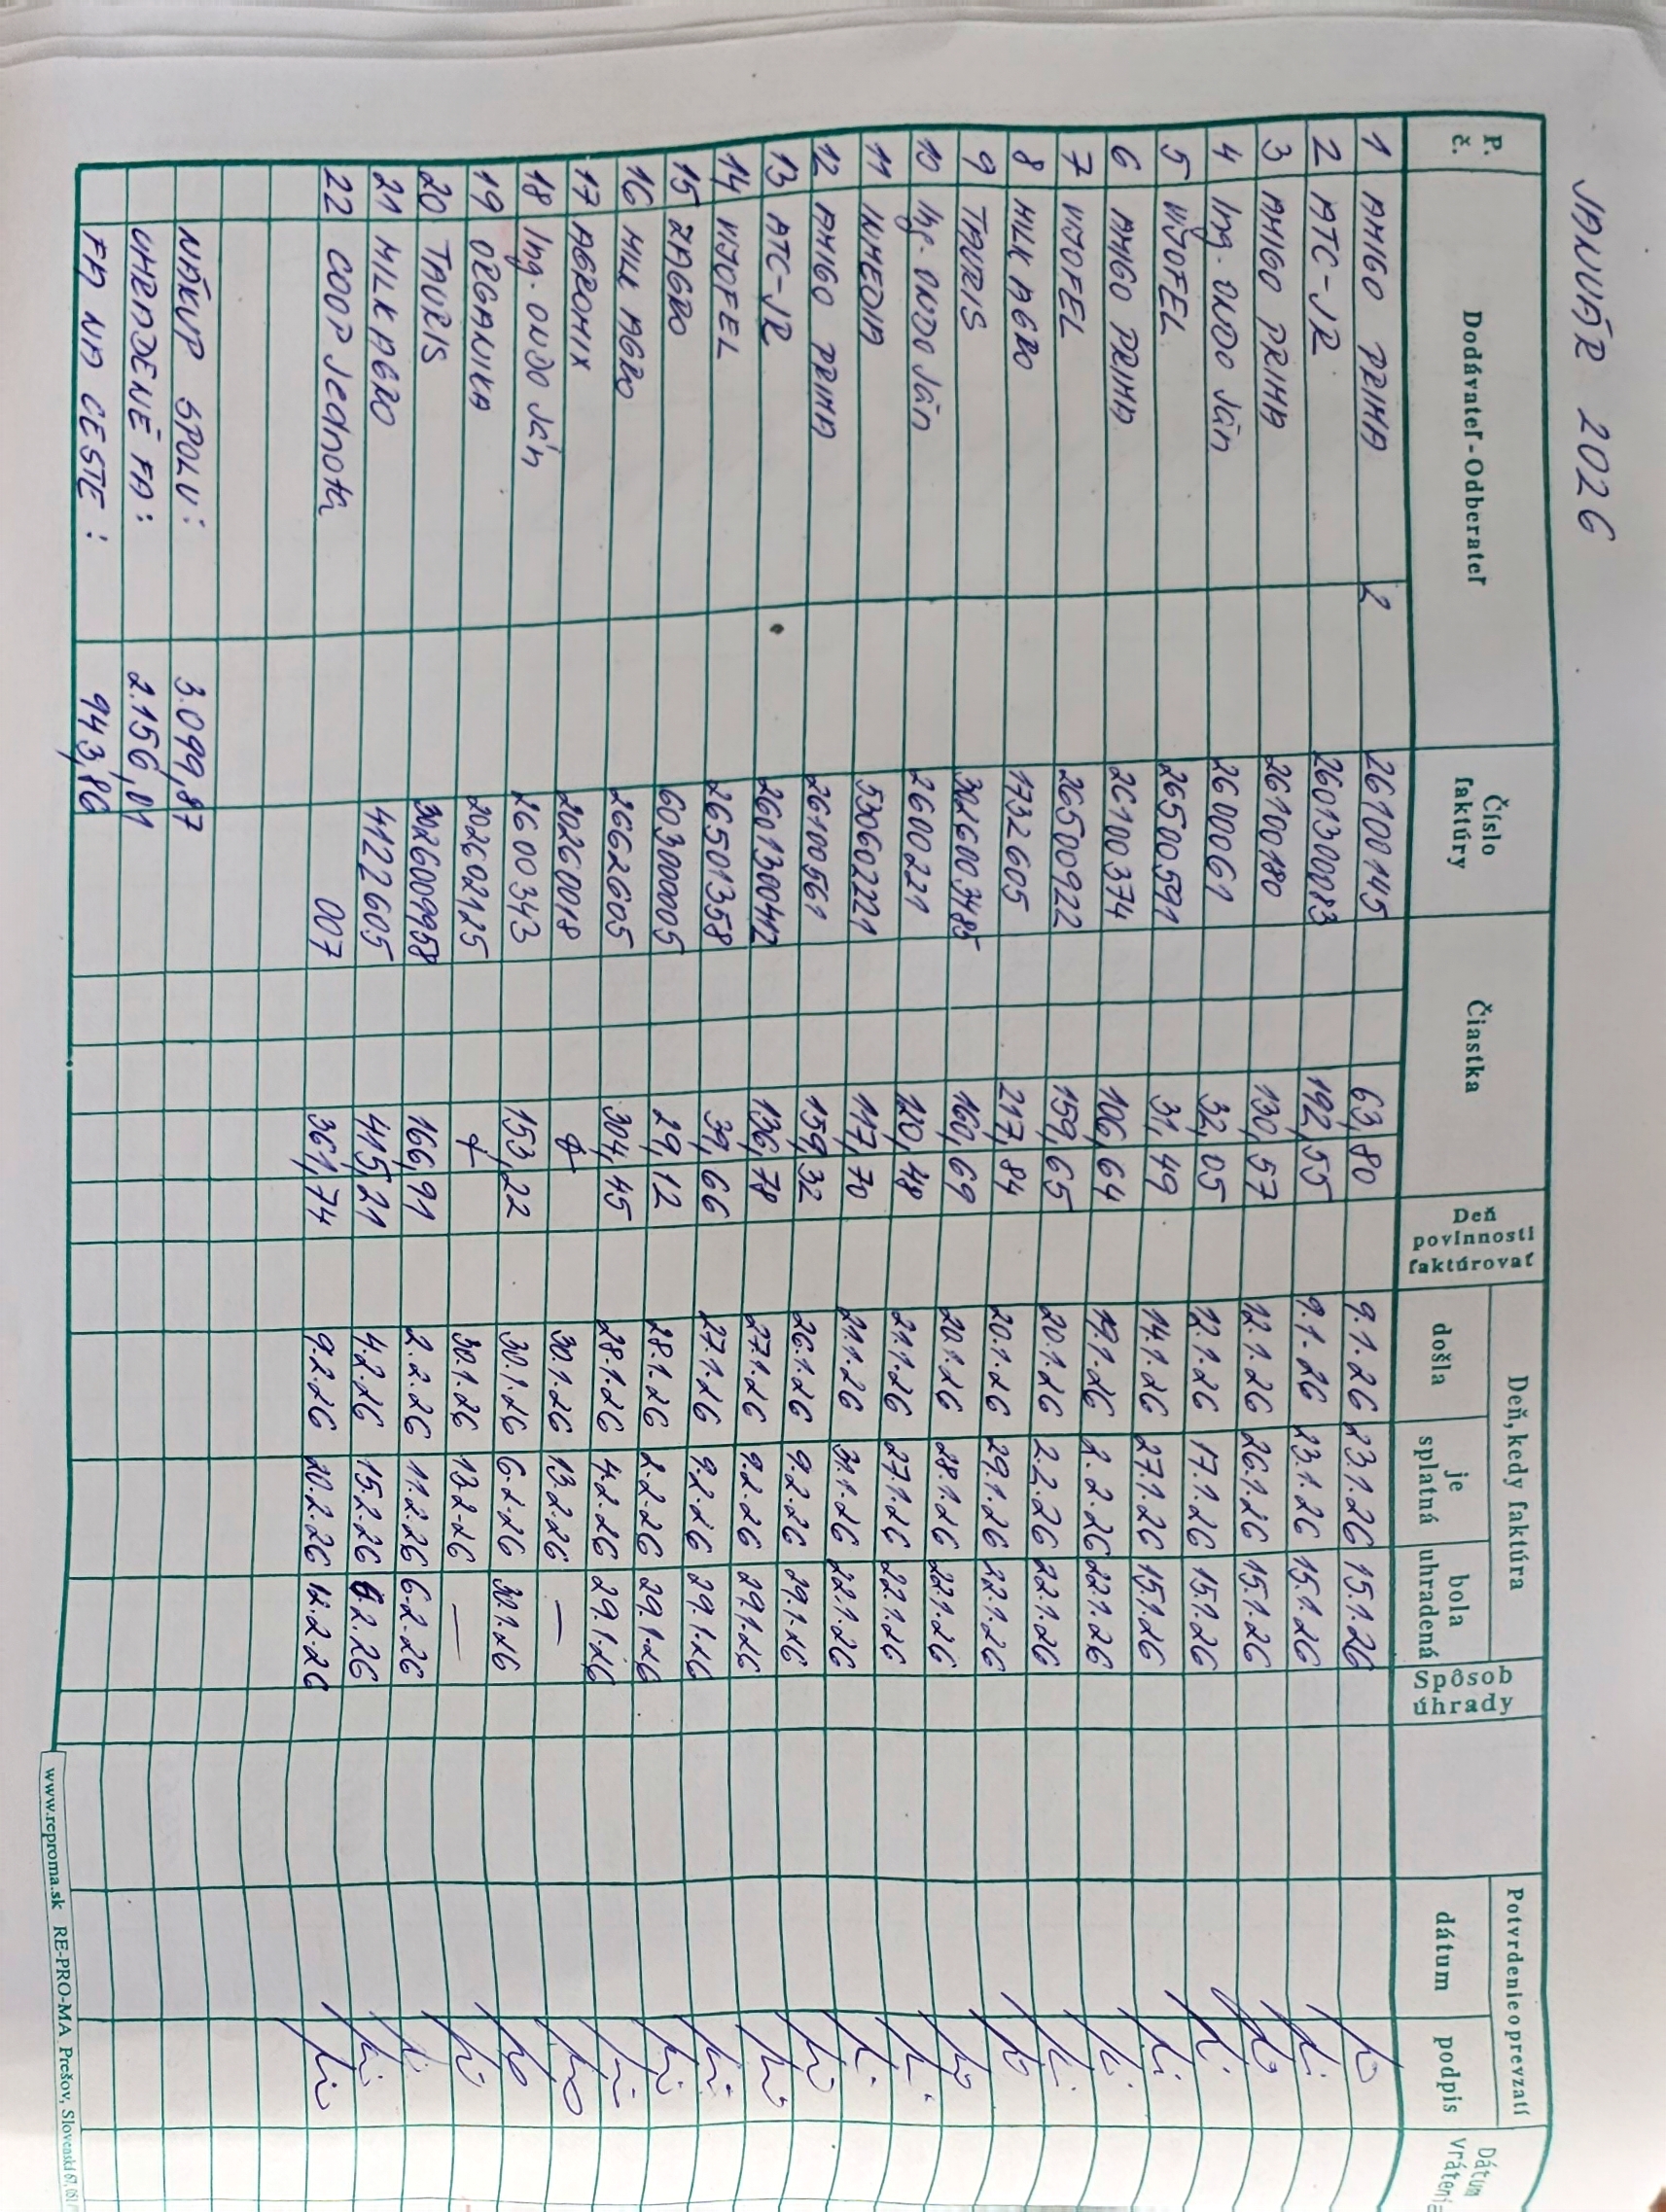 JANUÁR 2026
P. č. Dodávateľ - Odberateľ Číslo faktúry Čiastka Deň povinnosti fakturovať Deň, kedy faktúra došla je splatná bola uhradená Spôsob úhrady Potvrdenie o prevzatí dátum podpis Dátum vrátenia
1 AMIGO PRIMA 26100145 63,80 9.1.26 23.1.26 15.1.26
2 ATC-JR 2601300083 192,55 9.1.26 23.1.26 15.1.26
3 AMIGO PRIMA 26100180 130,57 12.1.26 26.1.26 15.1.26
4 Ing. ONDO Ján 2600061 32,05 12.1.26 17.1.26 15.1.26
5 VIJOFEL 26500591 31,49 14.1.26 27.1.26 15.1.26
6 AMIGO PRIMA 26100374 106,64 19.1.26 2.2.26 22.1.26
7 VIJOFEL 26500922 159,65 20.1.26 2.2.26 22.1.26
8 MILK AGRO 1732605 217,84 20.1.26 29.1.26 22.1.26
9 TAURIS 3026003485 160,69 20.1.26 28.1.26 22.1.26
10 Ing. ONDO Ján 2600221 120,48 21.1.26 27.1.26 22.1.26
11 INMEDIA 530602221 117,70 21.1.26 31.1.26 22.1.26
12 AMIGO PRIMA 26100561 159,32 26.1.26 9.2.26 29.1.26
13 ATC-JR 2601300412 136,78 27.1.26 9.2.26 29.1.26
14 VIJOFEL 26501358 39,66 27.1.26 9.2.26 29.1.26
15 ZAGRO 603000005 29,12 28.1.26 2.2.26 29.1.26
16 MILK AGRO 2662605 304,45 28.1.26 4.2.26 29.1.26
17 AGROMIX 20260018 30.1.26 13.2.26 —
18 Ing. ONDO Ján 2600343 153,22 30.1.26 6.2.26 30.1.26
19 ORGANIKA 202602125 30.1.26 13.2.26 —
20 TAURIS 3026009958 166,91 2.2.26 11.2.26 6.2.26
21 MILK AGRO 4122605 415,21 4.2.26 15.2.26 6.2.26
22 COOP Jednota 007 361,74 9.2.26 20.2.26 12.2.26
NÁKUP SPOLU: 3.099,87
UHRADENÉ FA: 2.156,01
FA NA CESTE: 943,86
www.reproma.sk RE-PRO-MA Prešov, Slovenská 67,